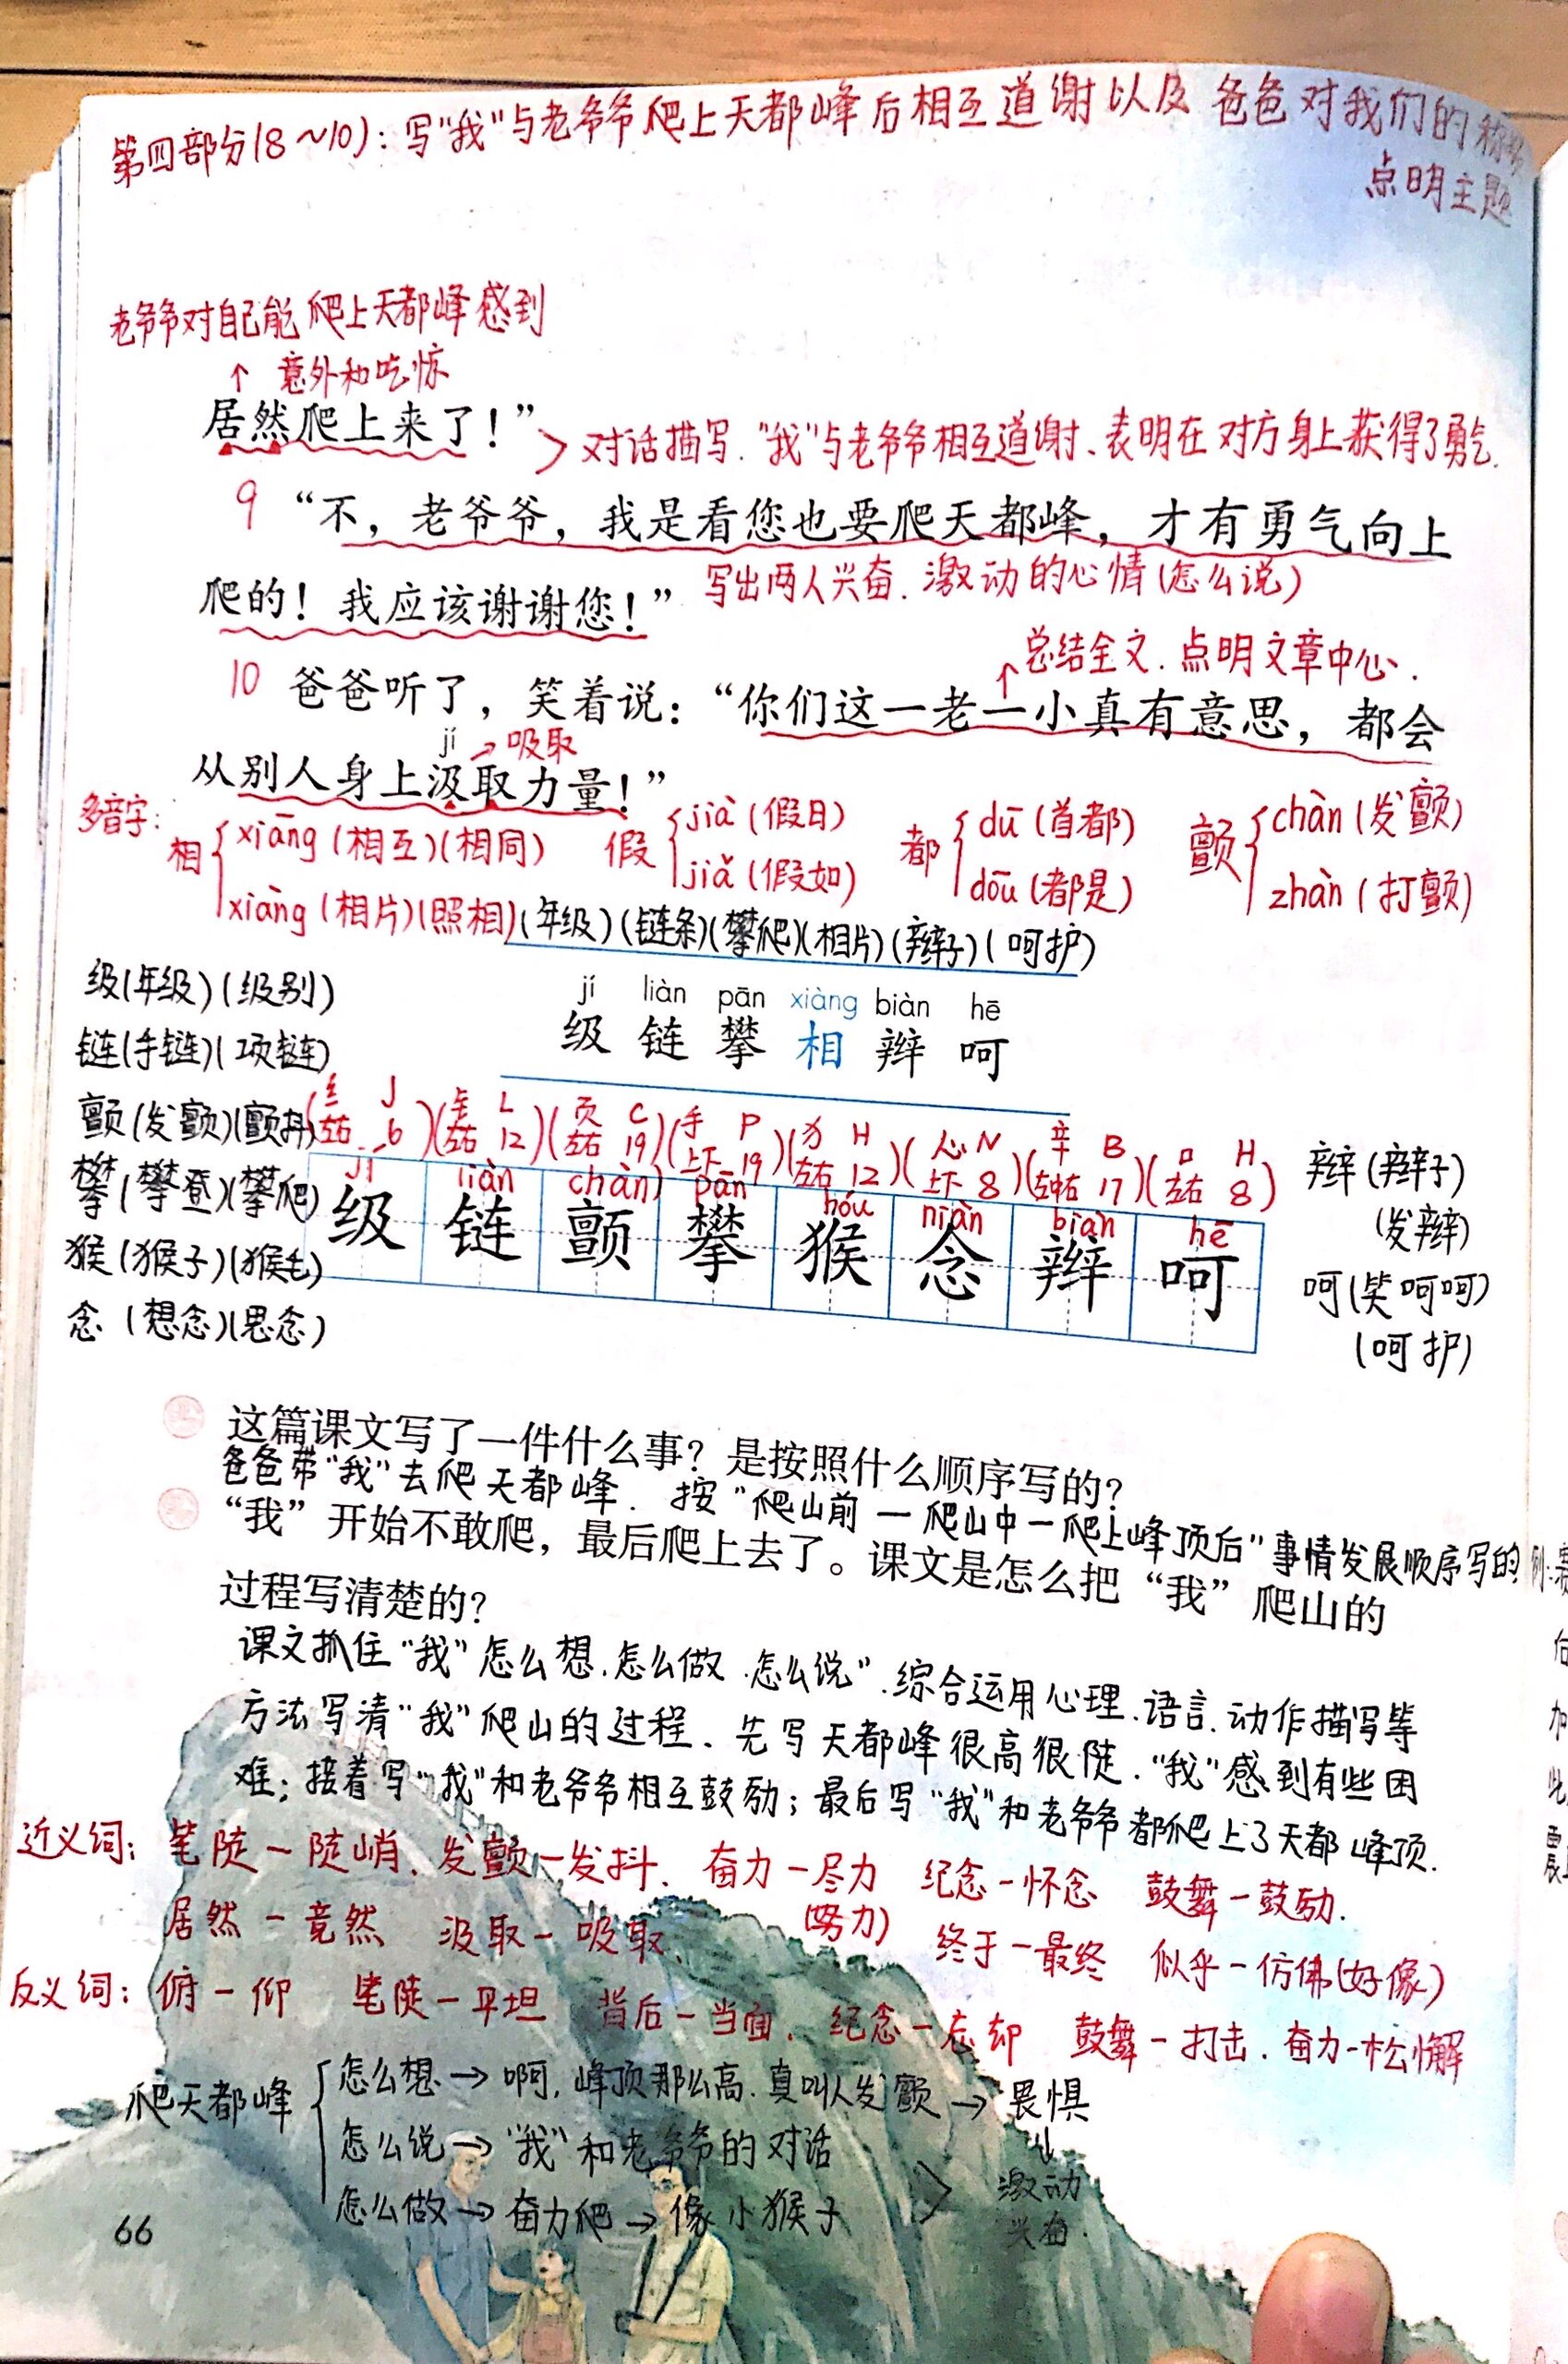 第四部分(8~10)：写"我"与老爷爷爬上天都峰后相互道谢以及爸爸对我们的称
点明主题
老爷爷对自己能爬上天都峰感到
↑ 意外和吃惊
居然爬上来了！”
> 对话描写."我"与老爷爷相互道谢、表明在对方身上获得了勇气.
9 “不，老爷爷，我是看您也要爬天都峰，才有勇气向上
爬的！我应该谢谢您！”
写出两人兴奋.激动的心情(怎么说)
↑总结全文.点明文章中心.
10 爸爸听了，笑着说：“你们这一老一小真有意思，都会
jí →吸取
从别人身上汲取力量！”
多音字:
相{xiāng(相互)(相同) 假{jià(假日) 都{dū(首都) 颤{chàn(发颤)
xiàng(相片)(照相) jiǎ(假如) dōu(都是) zhàn(打颤)
(年级)(链条)(攀爬)(相片)(辫子)(呵护)
jí liàn pān xiàng biàn hē
级 链 攀 相 辫 呵
级(年级)(级别)
链(手链)(项链)
颤(发颤)(颤抖)
攀(攀登)(攀爬)
猴(猴子)(猴毛)
念(想念)(思念)
(纟 J)(钅 L)(页 C)(手 P)(犭 H)(心 N)(辛 B)(口 H)
(左右 6)(左右 12)(左右 19)(上下 19)(左右 12)(上下 8)(左中右 17)(左右 8)
jí liàn chàn pān hóu niàn biàn hē
级 链 颤 攀 猴 念 辫 呵
辫(辫子)
(发辫)
呵(笑呵呵)
(呵护)
这篇课文写了一件什么事？是按照什么顺序写的？
爸爸带"我"去爬天都峰. 按"爬山前一爬山中一爬上峰顶后"事情发展顺序写的
“我”开始不敢爬，最后爬上去了。课文是怎么把“我”爬山的
过程写清楚的？
课文抓住"我"怎么想.怎么做.怎么说".综合运用心理.语言.动作描写等
方法写清"我"爬山的过程.先写天都峰很高很陡."我"感到有些困
难;接着写"我"和老爷爷相互鼓励;最后写"我"和老爷爷都爬上了天都峰顶.
近义词: 笔陡－陡峭、发颤－发抖. 奋力－尽力 纪念－怀念 鼓舞－鼓励.
(努力)
居然－竟然 汲取－吸取、 终于－最终 似乎－仿佛(好像)
反义词: 俯－仰 笔陡－平坦 背后－当面. 纪念－忘却 鼓舞－打击. 奋力-松懈
爬天都峰{怎么想→啊,峰顶那么高.真叫人发颤→畏惧
↓
怎么说→"我"和老爷爷的对话
激动
怎么做→奋力爬→像小猴子
兴奋.
66